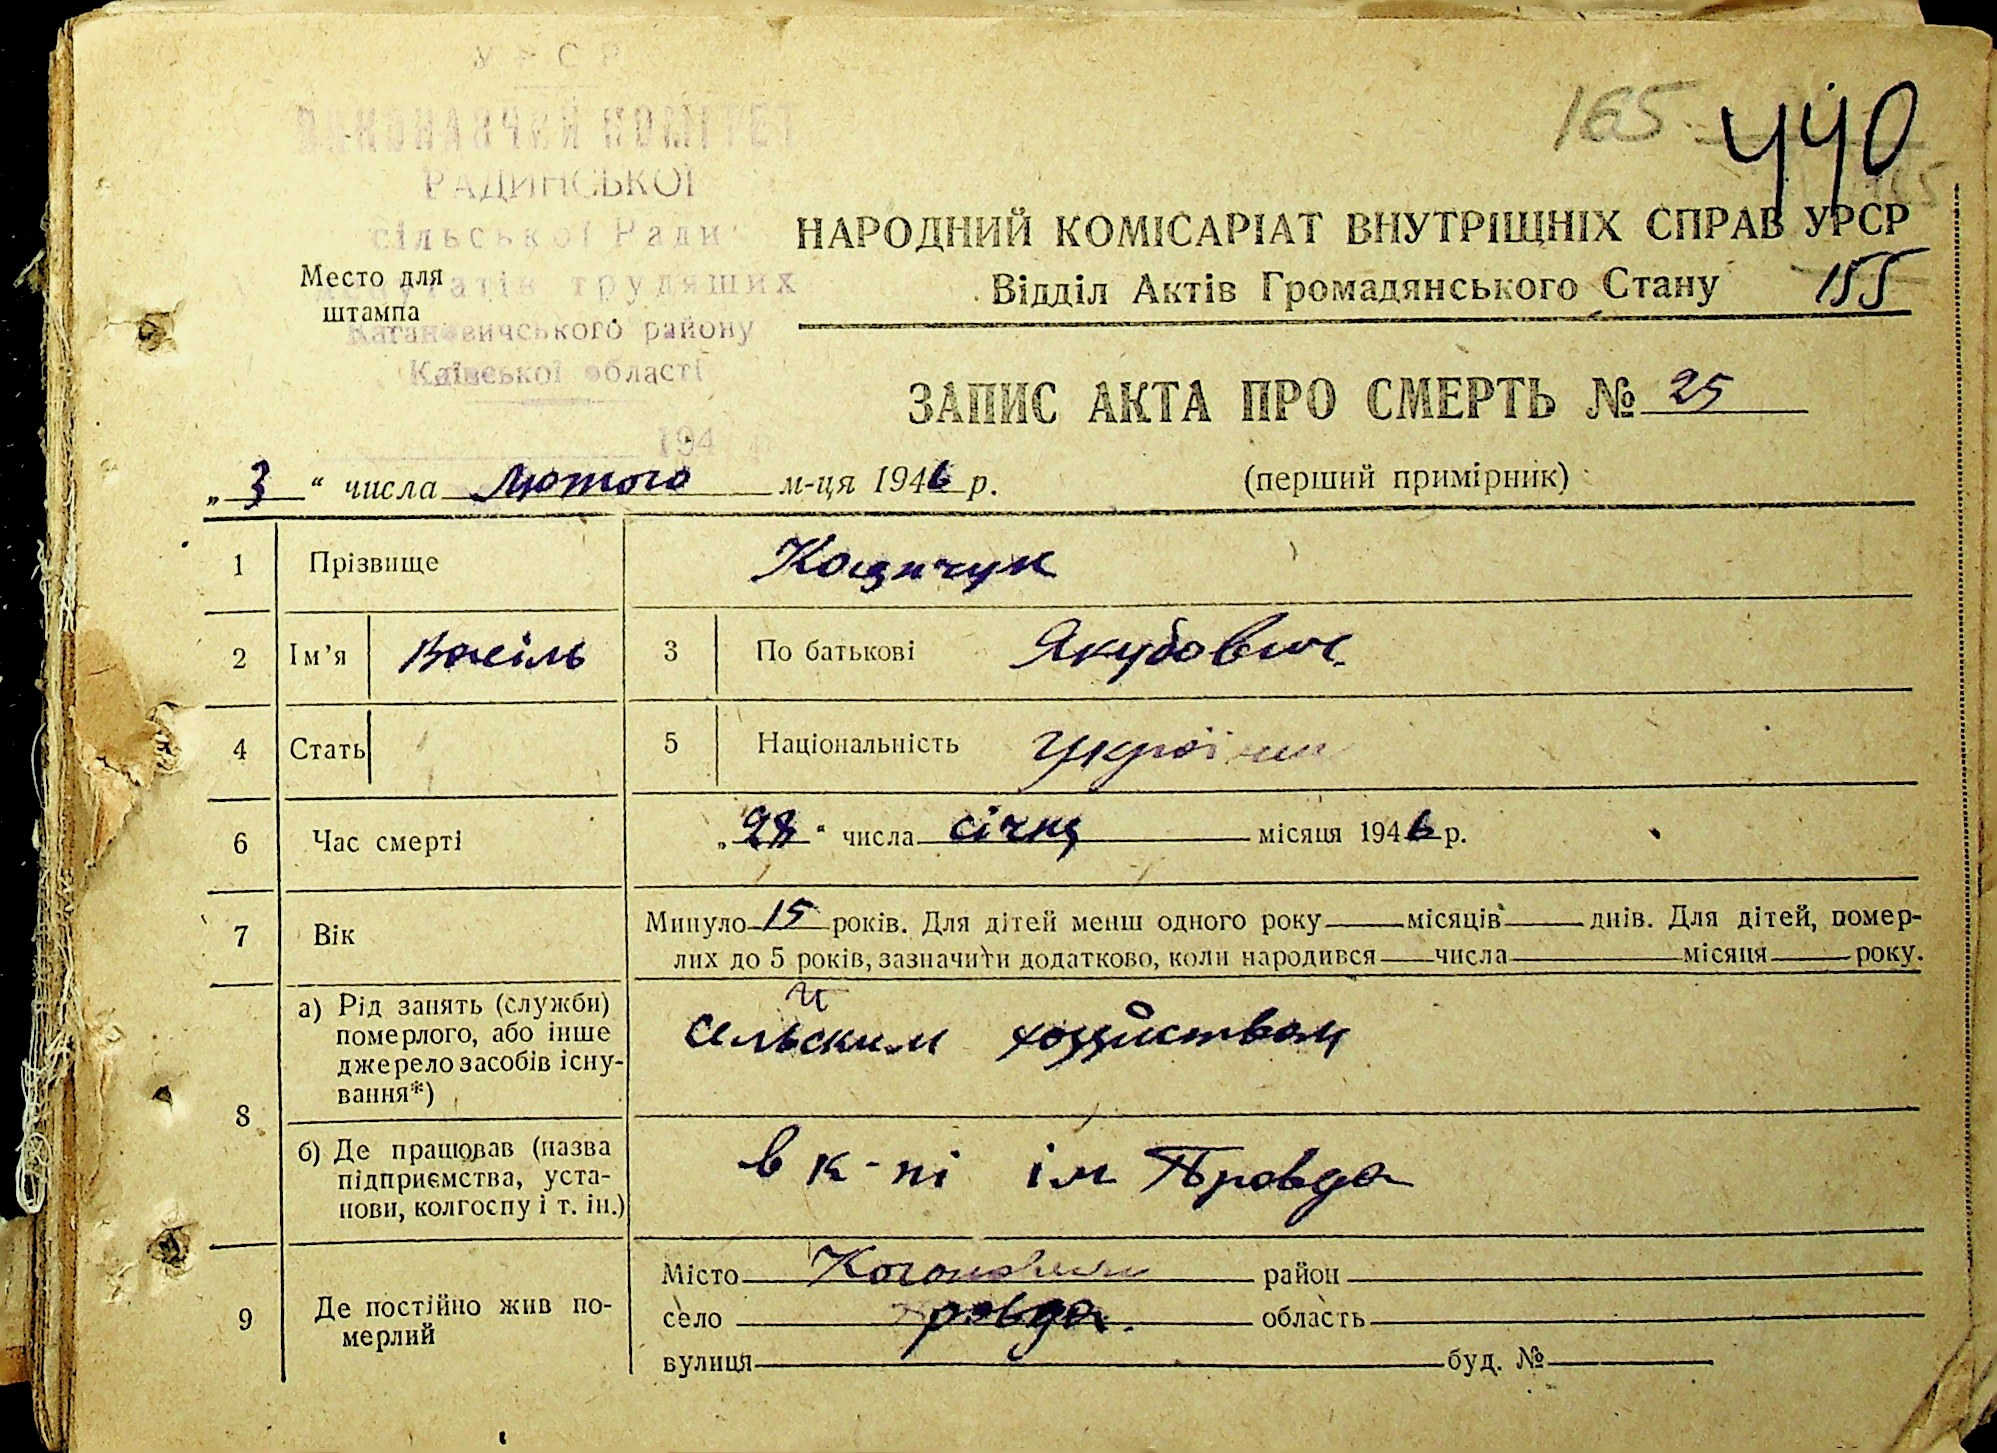 УРСР
ВИКОНАВЧИЙ КОМІТЕТ
РАДИНСЬКОЇ
сільської Ради
депутатів трудящих
Кагановичського району
Київської області
194 р.
Место для
штампа
165 440
НАРОДНИЙ КОМІСАРІАТ ВНУТРІЩНІХ СПРАВ УРСР
Відділ Актів Громадянського Стану 155
ЗАПИС АКТА ПРО СМЕРТЬ № 25
„3“ числа лютого м-ця 1946 р. (перший примірник)
1 Прізвище Кощичук
2 Ім’я Васіль 3 По батькові Якубович
4 Стать 5 Національність Українец
6 Час смерті „28“ числа січня місяця 1946 р.
7 Вік Минуло 15 років. Для дітей менш одного року місяців днів. Для дітей, помер-
лих до 5 років, зазначити додатково, коли народився числа місяця року.
8 а) Рід занять (служби)
померлого, або інше
джерело засобів існу-
вання*)
сельским хозяйством
б) Де працював (назва
підприємства, уста-
нови, колгоспу і т. ін.)
в к-пі ім Правда
9 Де постійно жив по-
мерлий
Місто район
село Равда область
вулиця буд. №